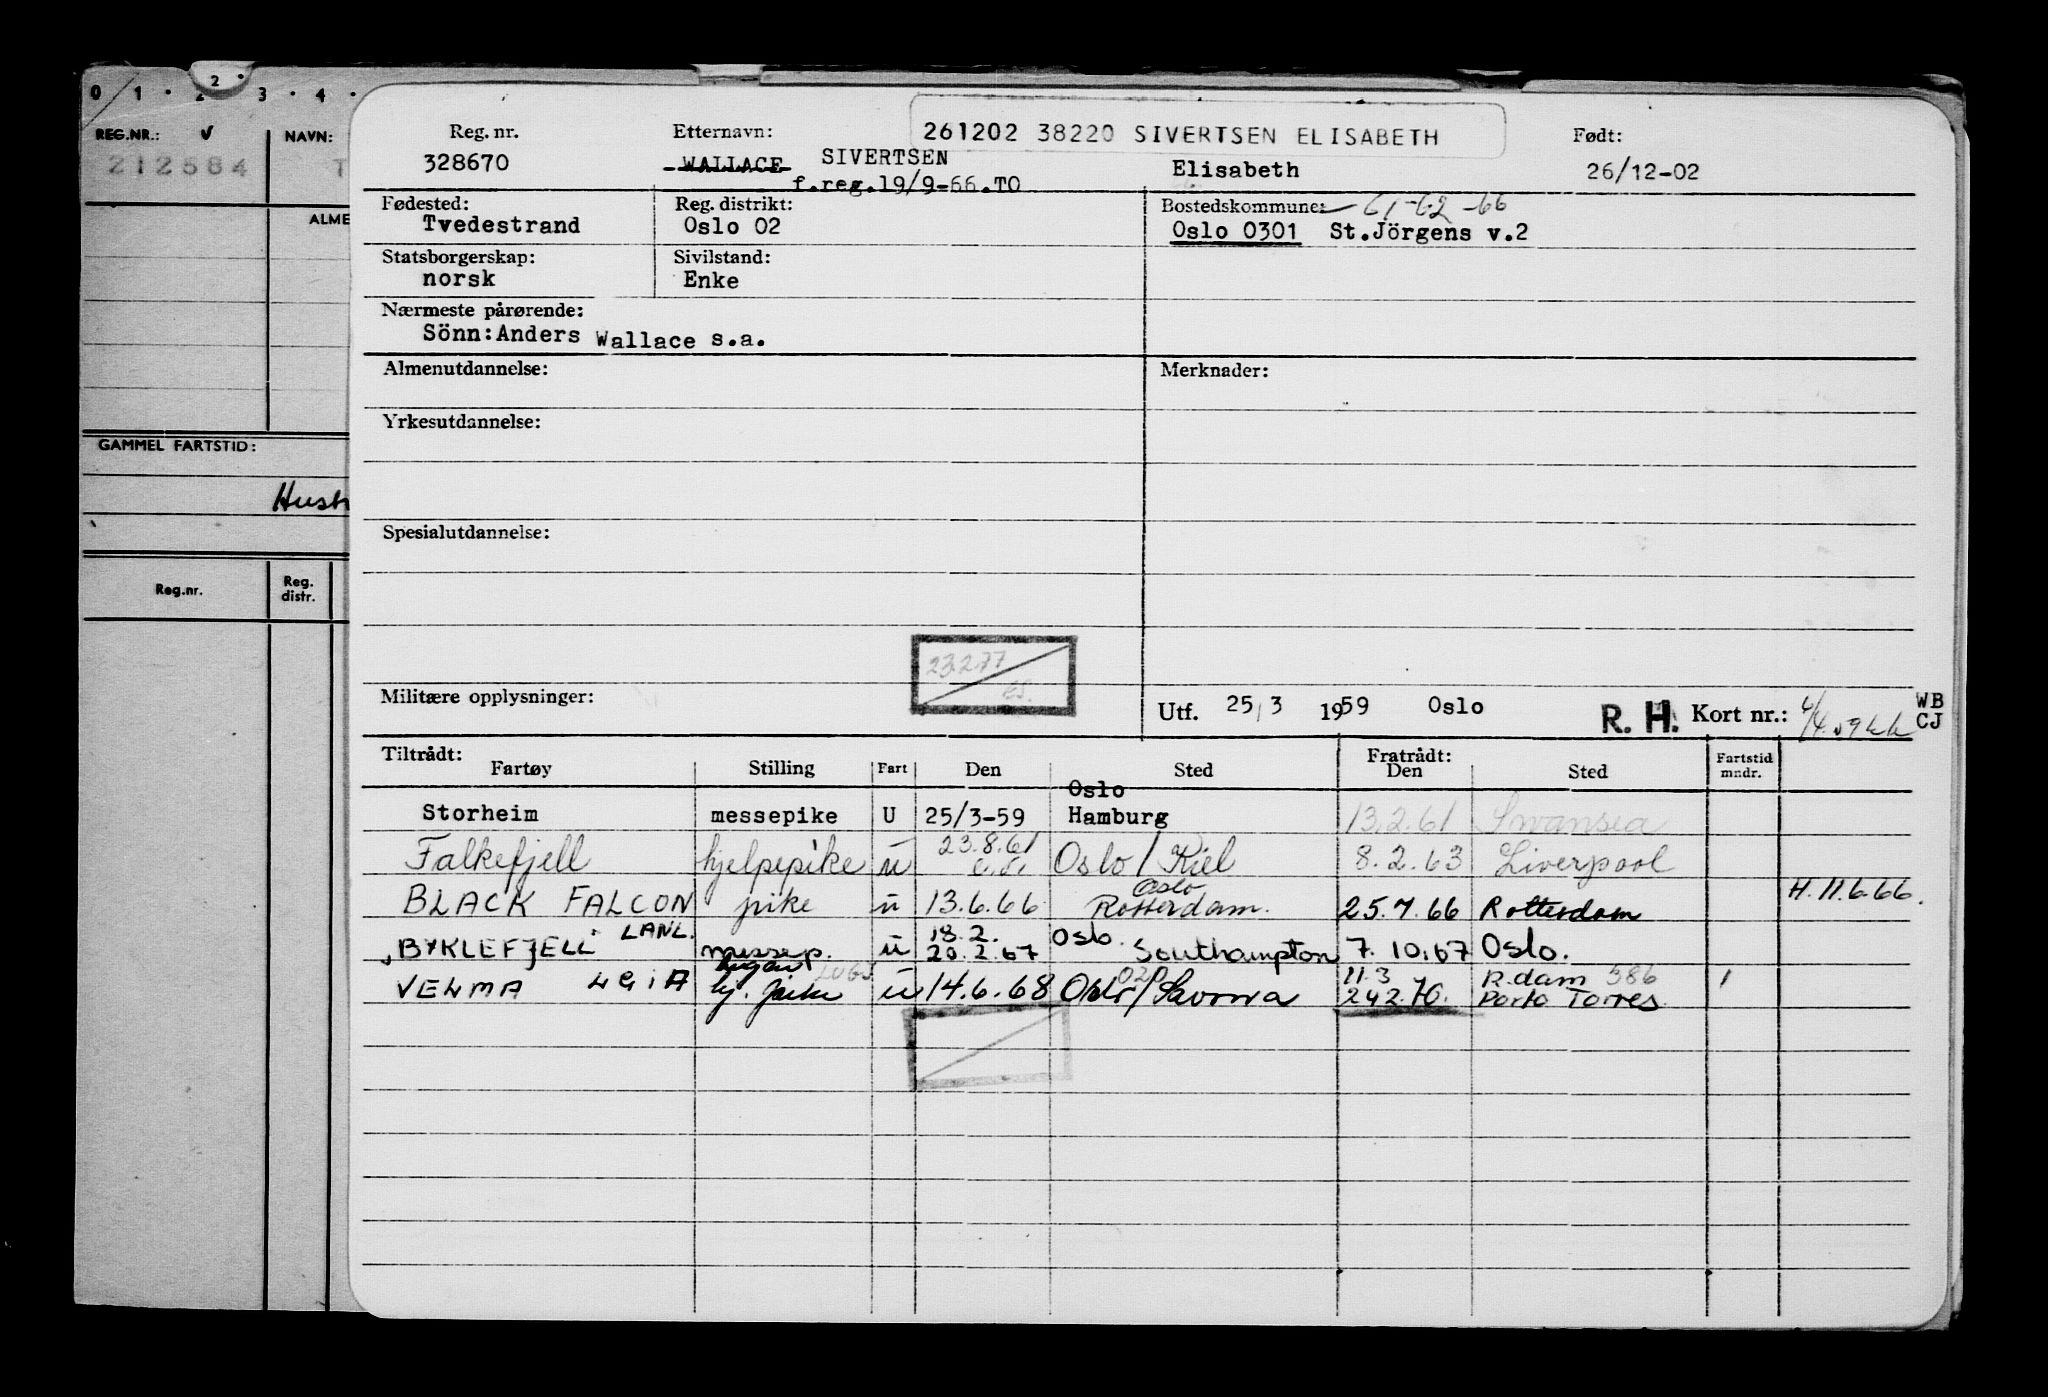 0 1 · 2 · 3 · 4 ·
2
REG.NR.: v NAVN:
212584 T
ALME
GAMMEL FARTSTID:
Hust
Reg.nr. Reg. distr.
Reg. nr. Etternavn: 261202 38220 SIVERTSEN ELISABETH Født:
328670 WALLACE SIVERTSEN Elisabeth 26/12-02
f.reg.19/9-66.TO
Fødested: Reg. distrikt: Bostedskommune: 61-62-66
Tvedestrand Oslo 02 Oslo 0301 St.Jörgens v.2
Statsborgerskap: Sivilstand:
norsk Enke
Nærmeste pårørende:
Sönn:Anders Wallace s.a.
Almenutdannelse: Merknader:
Yrkesutdannelse:
Spesialutdannelse:
23.2.77
Militære opplysninger: Utf. 25/3 1959 Oslo R. H. Kort nr.: WB
CJ
Tiltrådt: Fratrådt: Fartstid
Fartøy Stilling Fart Den Sted Den Sted mndr.
Oslo
Storheim messepike U 25/3-59 Hamburg 13.2.61 Swansea
23.8.61
Falkefjell hjelpepike u Oslo / Kiel 8.2.63 Liverpool
Oslo H. 11.6.66.
BLACK FALCON pike u 13.6.66 Rotterdam. 25.7.66 Rotterdam
LANL. 18.2. Oslo.
BYKLEFJELL messep. u 20.2.67 Southampton 7.10.67 Oslo.
020 11.3 R.dam 586
VELMA LGIA hj. pike u 14.6.68 Oslo/Savona 24.2.70. Porto Torres 1